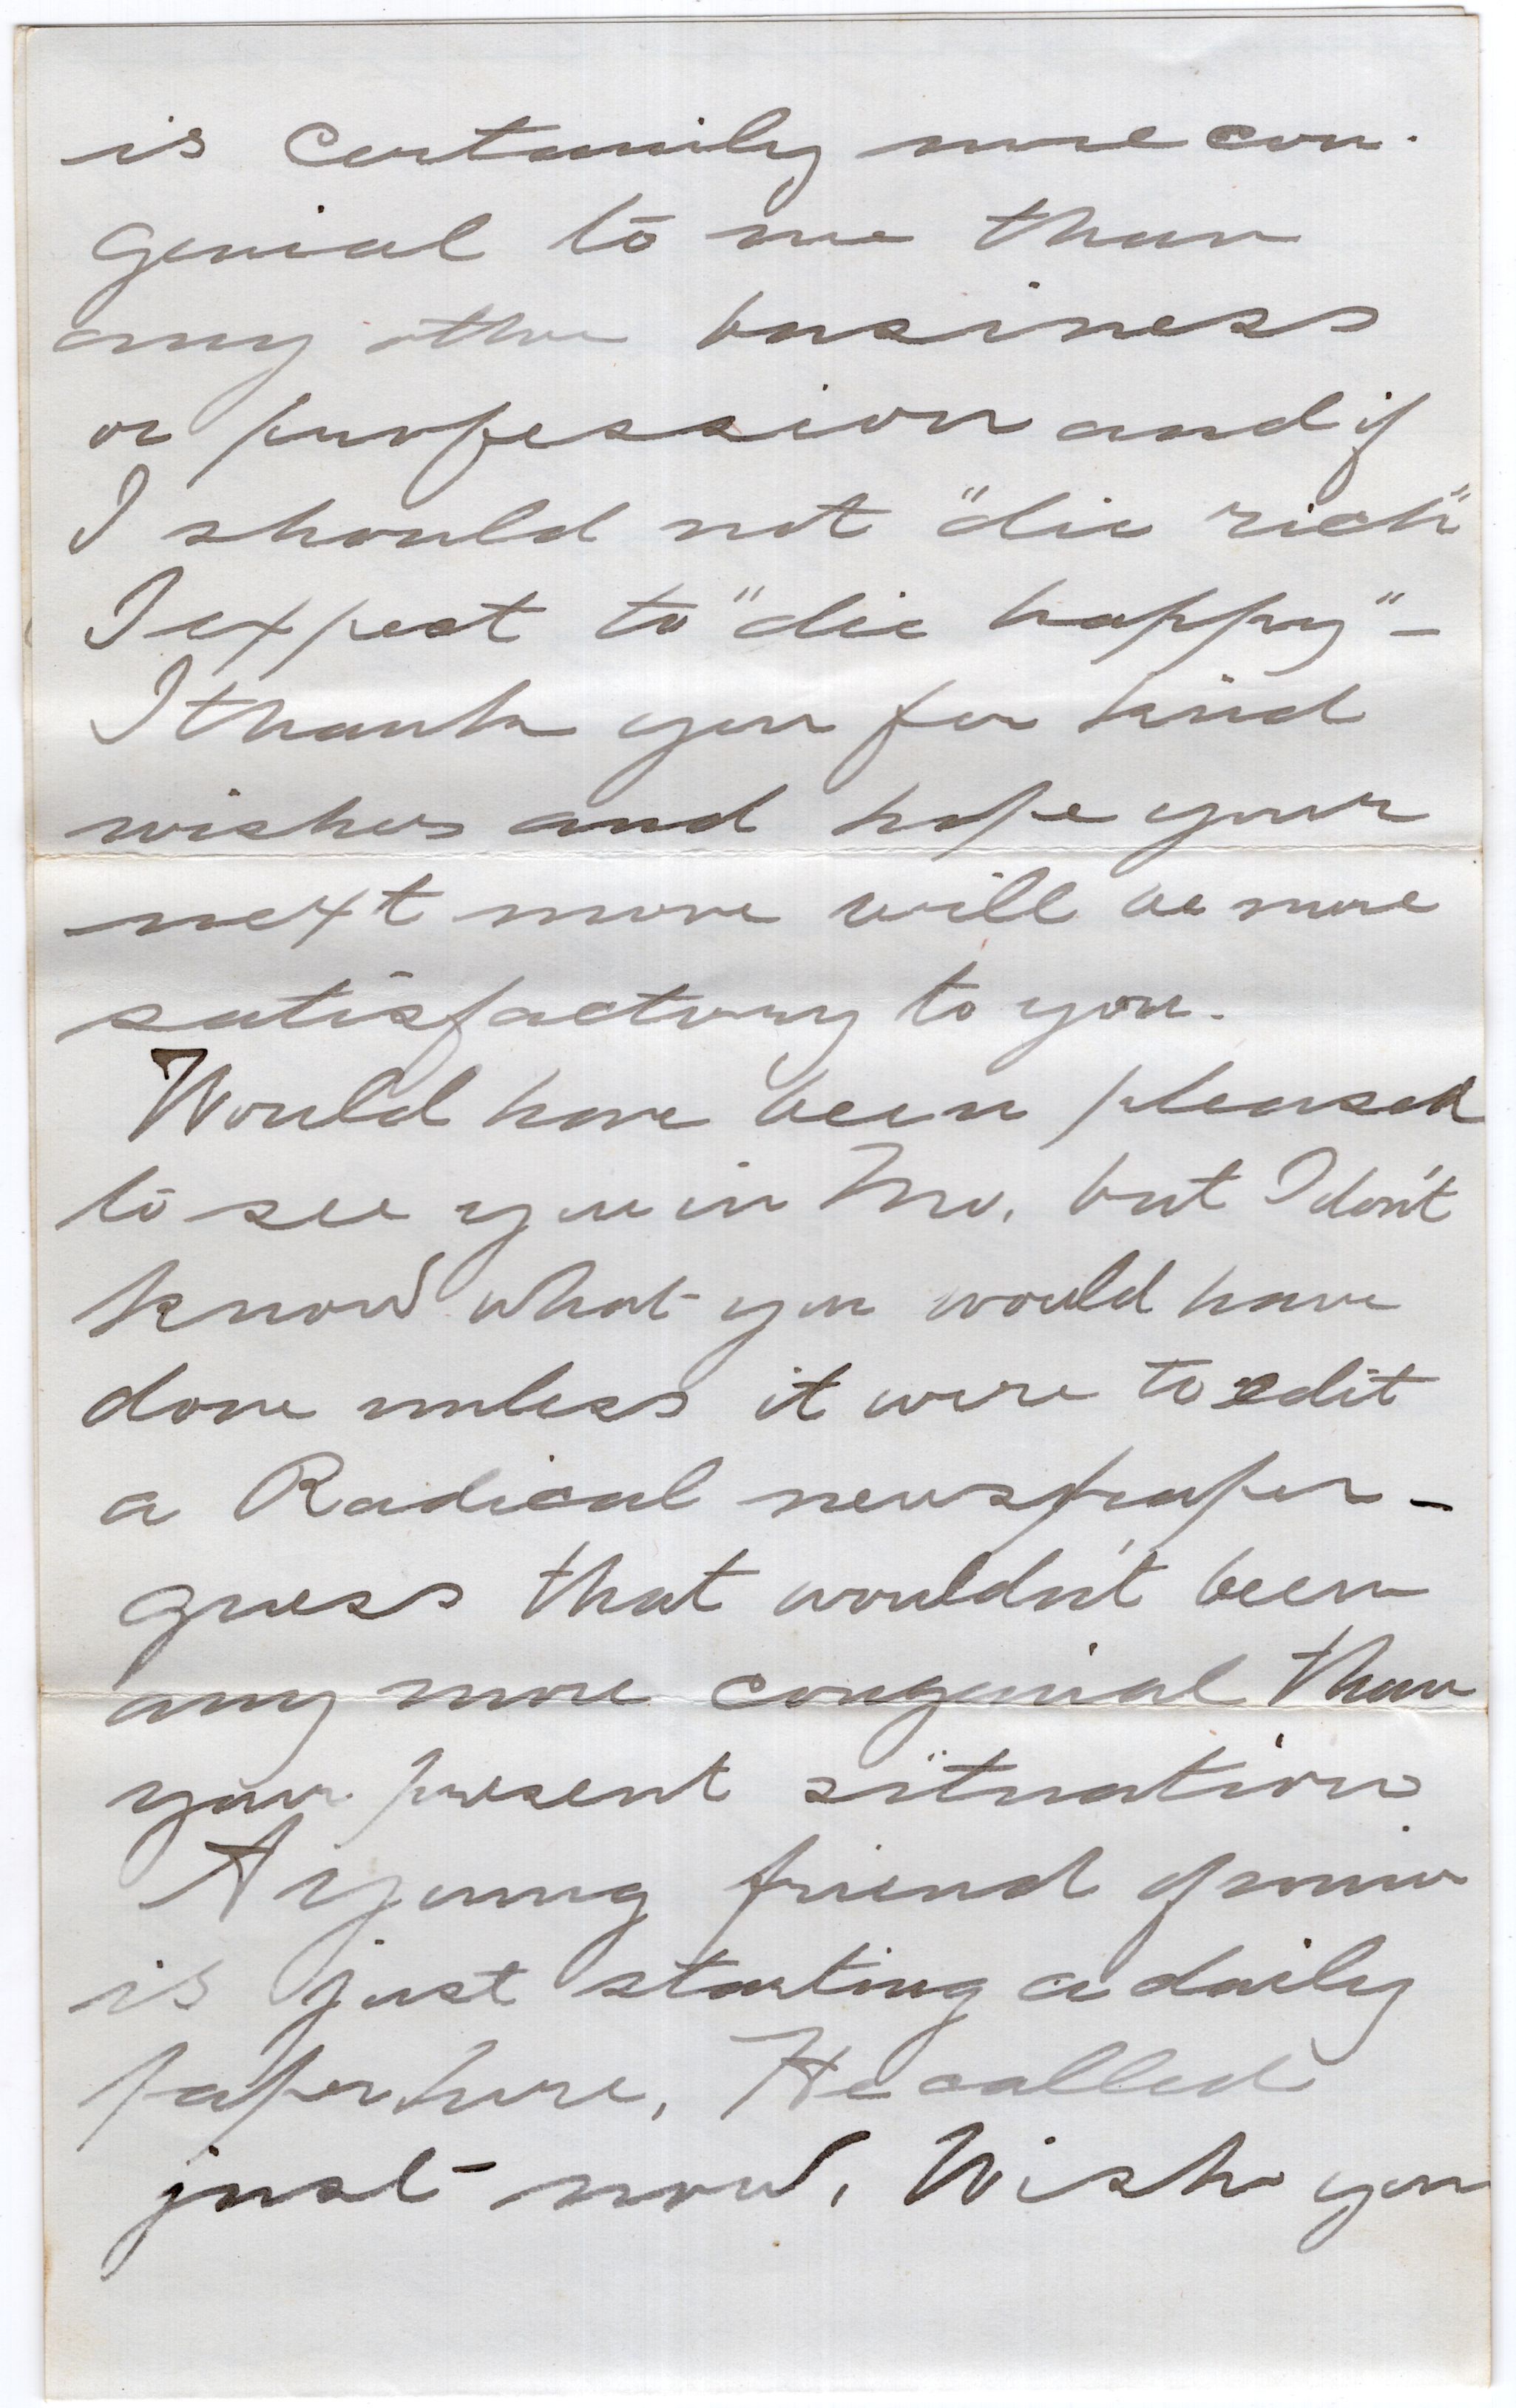 is certainly more con-
genial to me than
any other business
or profession and if
I should not "die rich"
I expect to "die happy" -
I thank you for kind
wishes and hope your
next move will be more
satisfactory to you.
Would have been pleased
to see you in Mo, but I don't
know what you would have
done unless it were to edit
a Radical newspaper -
guess that wouldn't been
any more congenial than
your present situation
A young friend of mine
is just starting a daily
paper here, He called
just now, Wish you